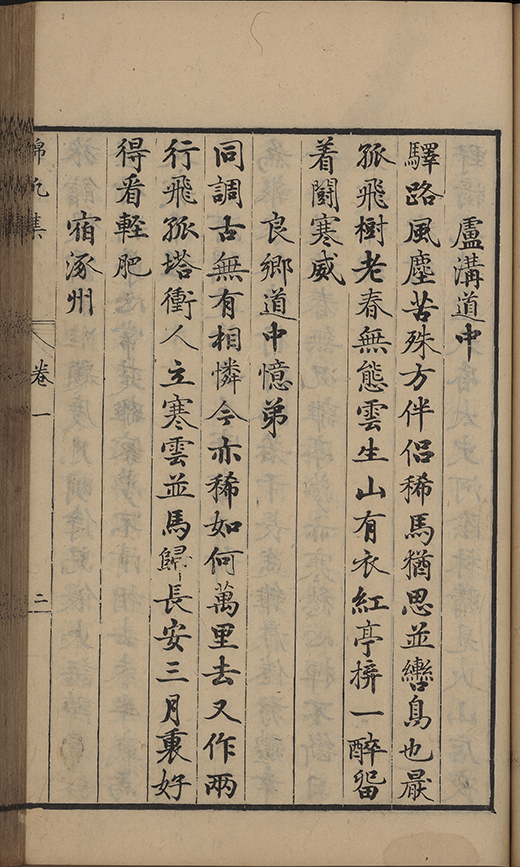 盧溝道中
驛路風塵苦殊方伴侶稀馬猶思並轡鳥也厭
孤飛樹老春無態雲生山有衣紅亭拚一醉留
着鬪寒威
良鄉道中憶弟
同調古無有相憐今亦稀如何萬里去又作兩
行飛孤塔衝人立寒雲並馬歸長安三月裏好
得看軽肥
宿涿州
卷一
二